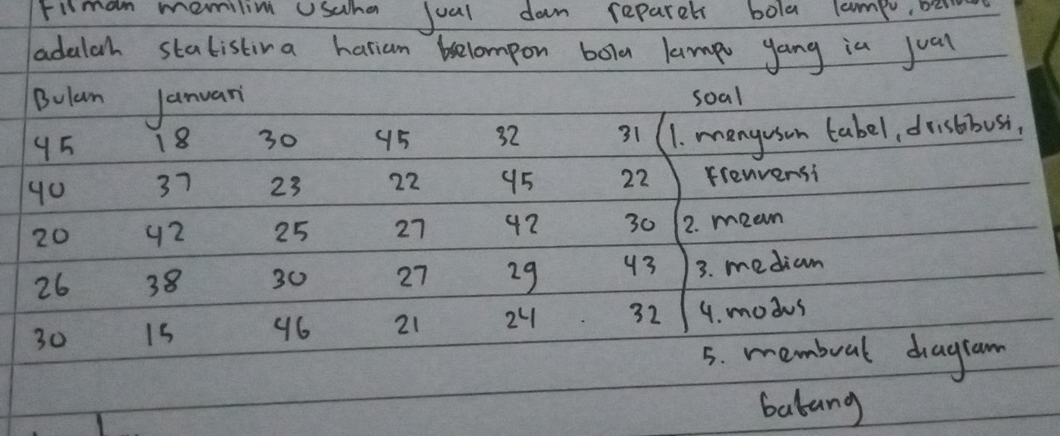 Firman memiliki usaha jual dan reparek bola lampu,
adalah statistina harian belompon bola lampu yang ia jual
Bulan Januari soal
45 18 30 45 32 31 1. menyusun tabel, dristibusi,
40 37 23 22 45 22 frenvensi
20 42 25 27 42 30 2. mean
26 38 30 27 29 43 3. median
30 15 46 21 24 32 4. modus
5. membuat diagram
batang